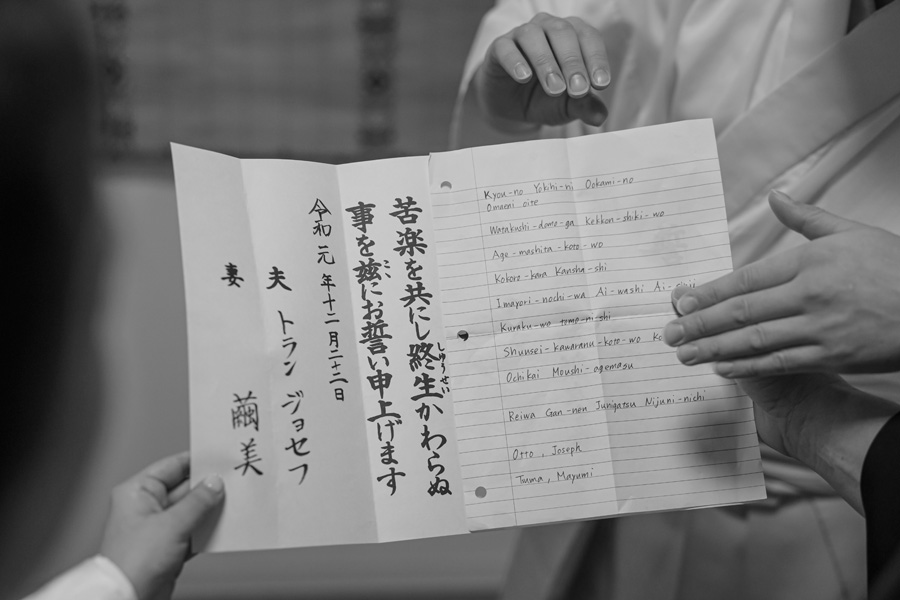 苦楽を共にし終生かわらぬ
しゅうせい
事を玆にお誓い申上げます
ここ
令和元年十二月二十二日
夫 トラン ジョセフ
妻 繭美
Kyou-no Yokihi-ni Ookami-no
Omaeni oite
Watakushi-domo-ga Kekkon-shiki-wo
Age-mashita-koto-wo
Kokoro-kara Kansha-shi
Imayori-nochi-wa Ai-washi Ai-
Kuraku-wo tomo-ni-shi
Shunsei-kawaranu-koto-wo
Ochikai Moushi-agemasu
Reiwa Gan-nen Junigatsu Nijuni-nichi
Otto, Joseph
Tsuma, Mayumi